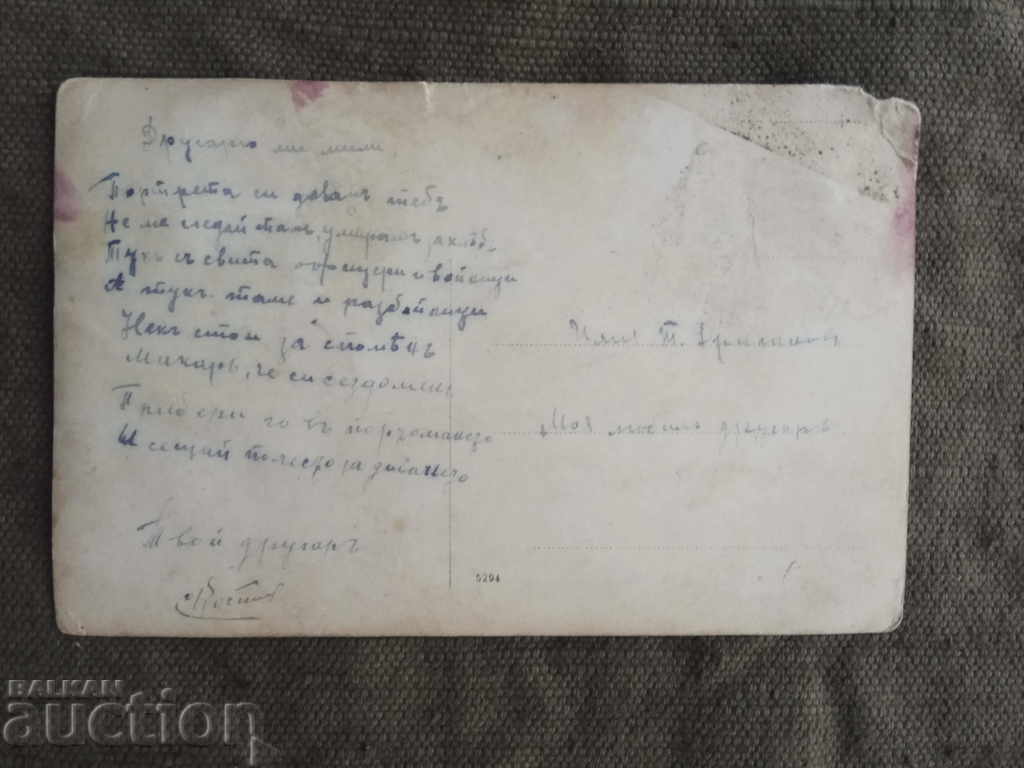 Другарю ми мили
Портрета си давамъ тебъ
Не ме гледай тамъ, умирамъ за хлѣб
Тукъ съ свита офицери и войници
А тукъ таме и разбойници
Некъ стои за споменъ
Макаръ, че си бездоменъ
Прибери го въ портмането
И сещай
Твой другаръ
Или Т.
Моя милъ другаръ
5294
BALKAN
auction